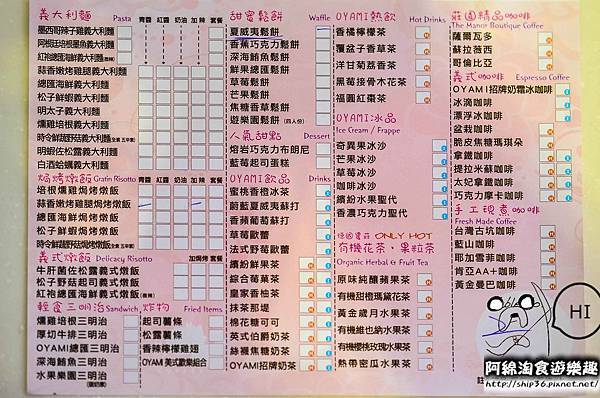 義大利麵 Pasta 青醬 紅醬 奶油 加辣 套餐
墨西哥辣子雞義大利麵
阿根廷培根墨魚義大利麵
紅袍總匯海鮮義大利麵
蒜香嫩烤雞腿義大利麵
總匯海鮮義大利麵
松子鮮蝦義大利麵
明太子義大利麵
燻雞培根義大利麵
時令鮮蔬野菇義大利麵
明蝦佐松露義大利麵
白酒蛤蠣義大利麵
焗烤燉飯 Gratin Risotto 青醬 紅醬 奶油 加辣 套餐
培根燻雞焗烤燉飯
蒜香嫩烤雞腿焗烤燉飯
總匯海鮮焗烤燉飯
松子鮮蝦焗烤燉飯
時令鮮蔬野菇焗烤燉飯
義式燉飯 Delicacy Risotto 加焗烤 套餐
牛肝菌佐松露義式燉飯
松子野菇起司義式燉飯
紅袍總匯海鮮義式燉飯
輕食三明治 Sandwich
燻雞培根三明治
厚切牛排三明治
OYAMI總匯三明治
深海鮪魚三明治
水果樂園三明治
炸物 Fried Items
起司薯條
松露薯條
香辣檸檬雞翅
OYAMI 美式歡樂組合
甜蜜鬆餅 Waffle
夏威夷鬆餅
香蕉巧克力鬆餅
深海鮪魚鬆餅
鮮果總匯鬆餅
草莓鬆餅
芒果鬆餅
焦糖香草鬆餅
遊樂園鬆餅 (四人份)
人氣甜點 Dessert
熔岩巧克力布朗尼
藍莓起司蛋糕
OYAMI飲品 Drinks
蜜桃香橙冰茶
蔚藍夏威夷蘇打
香蘋葡萄蘇打
草莓歐蕾
法式野莓歐蕾
繽紛鮮果茶
綜合莓菓茶
皇家香柚茶
抹茶那堤
棉花糖可可
英式伯爵奶茶
絲襪焦糖奶茶
OYAMI招牌奶茶
OYAMI熱飲 Hot Drinks
香橘檸檬茶
覆盆子香草茶
洋甘菊荔香茶
黑莓接骨木花茶
福圓紅棗茶
OYAMI冰品
Ice Cream / Frappe
奇異果冰沙
芒果冰沙
草莓冰沙
咖啡冰沙
繽紛水果聖代
香濃巧克力聖代
ONLY HOT
有機花茶、果粒茶
Organic Herbal & Fruit Tea
原味純釀蘋果茶
有機甜橙瑪黛花茶
黃金歲月水果茶
有機維也納水果茶
有機櫻桃玫瑰水果茶
熱帶密瓜水果茶
莊園精品咖啡
The Manor Boutique Coffee
薩爾瓦多
蘇拉薇西
哥倫比亞
義式咖啡 Espresso Coffee
OYAMI招牌奶霜冰咖啡
冰滴咖啡
漂浮冰咖啡
盆栽咖啡
脆皮焦糖瑪琪朵
拿鐵咖啡
提拉米蘇咖啡
太妃拿鐵咖啡
巧克力摩卡咖啡
手工現煮咖啡
Fresh Made Coffee
台灣古坑咖啡
藍山咖啡
耶加雪菲咖啡
肯亞AA+咖啡
黃金曼巴咖啡
HI
阿綿淘食遊樂趣
http://ship36.pixnet.net/blog